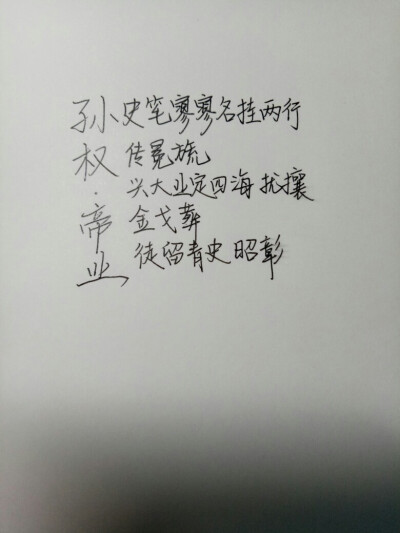 孙权·帝业
史笔寥寥名挂两行
传冕旒
兴大业定四海扰攘
金戈葬
徒留青史昭彰